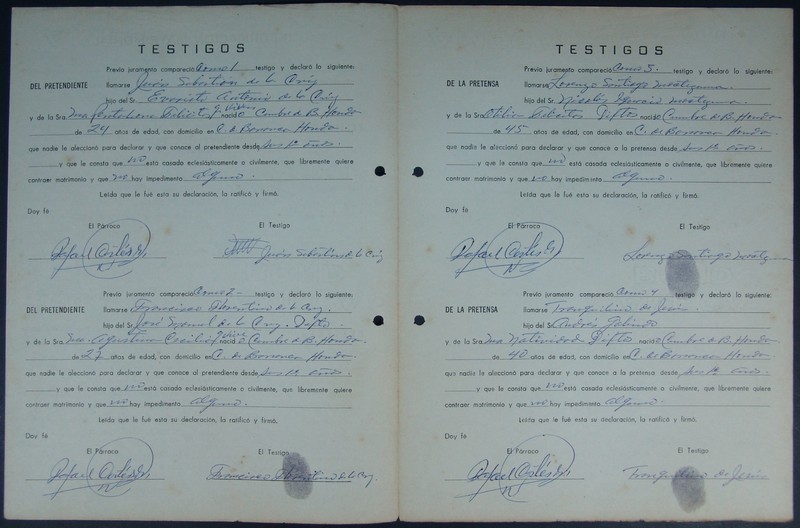 TESTIGOS
Previo juramento compareció Como 1 testigo y declaró lo siguiente:
DEL PRETENDIENTE llamarse Juan Sebastian de la Cruz
hijo del Sr. Evaristo Antonio de la Cruz
y de la Sra. Ma nació Cumbre de B. Honda
de 24 años de edad, con domicilio en C. de Barranca Honda.
que nadie le aleccionó para declarar y que conoce al pretendiente desde sus
y que le consta que no está casada eclesiásticamente o civilmente, que libremente quiere
contraer matrimonio y que no hay impedimento alguno.
Leída que le fué esta su declaración, la ratificó y firmó.
Doy fé
El Párroco El Testigo
Rafael Juan Sebastian de la Cruz
Previo juramento compareció Como 2- testigo y declaró lo siguiente:
DEL PRETENDIENTE llamarse Francisco Florentino de la Cruz.
hijo del Sr. José Manuel de la Cruz. Difto.
y de la Sra. Ma. Agustina nació Cumbre de B. Honda
de 27 años de edad, con domicilio en C. de Barranca Honda
que nadie le aleccionó para declarar y que conoce al pretendiente desde sus
y que le consta que no está casada eclesiásticamente o civilmente, que libremente quiere
contraer matrimonio y que no hay impedimento alguno.
Leída que le fué esta su declaración, la ratificó y firmó.
Doy fé
El Párroco El Testigo
Rafael Francisco Florentino de la Cruz.
TESTIGOS
Previo juramento compareció Como 3- testigo y declaró lo siguiente:
DE LA PRETENSA llamarse Lorenzo Santiago
hijo del Sr. Nicolas
y de la Sra. Difta nació Cumbre de B. Honda
de 45 años de edad, con domicilio en C. de Barranca Honda-
que nadie le aleccionó para declarar y que conoce a la pretensa desde sus
y que le consta que no está casada eclesiásticamente o civilmente, que libremente quiere
contraer matrimonio y que no hay impedimento alguno.
Leída que le fué esta su declaración, la ratificó y firmó.
Doy fé
El Párroco El Testigo
Rafael Lorenzo Santiago
Previo juramento compareció Como 4 testigo y declaró lo siguiente:
DE LA PRETENSA llamarse Tranquilino de Jesús
hijo del Sr. Andrés Galindo
y de la Sra. Ma Natividad Difta nació Cumbre de B. Honda
de 40 años de edad, con domicilio en C. de Barranca Honda
que nadie le aleccionó para declarar y que conoce a la pretensa desde sus
y que le consta que no está casada eclesiásticamente o civilmente, que libremente quiere
contraer matrimonio y que no hay impedimento alguno.
Leída que le fué esta su declaración, la ratificó y firmó.
Doy fé
El Párroco El Testigo
Rafael Tranquilino de Jesús